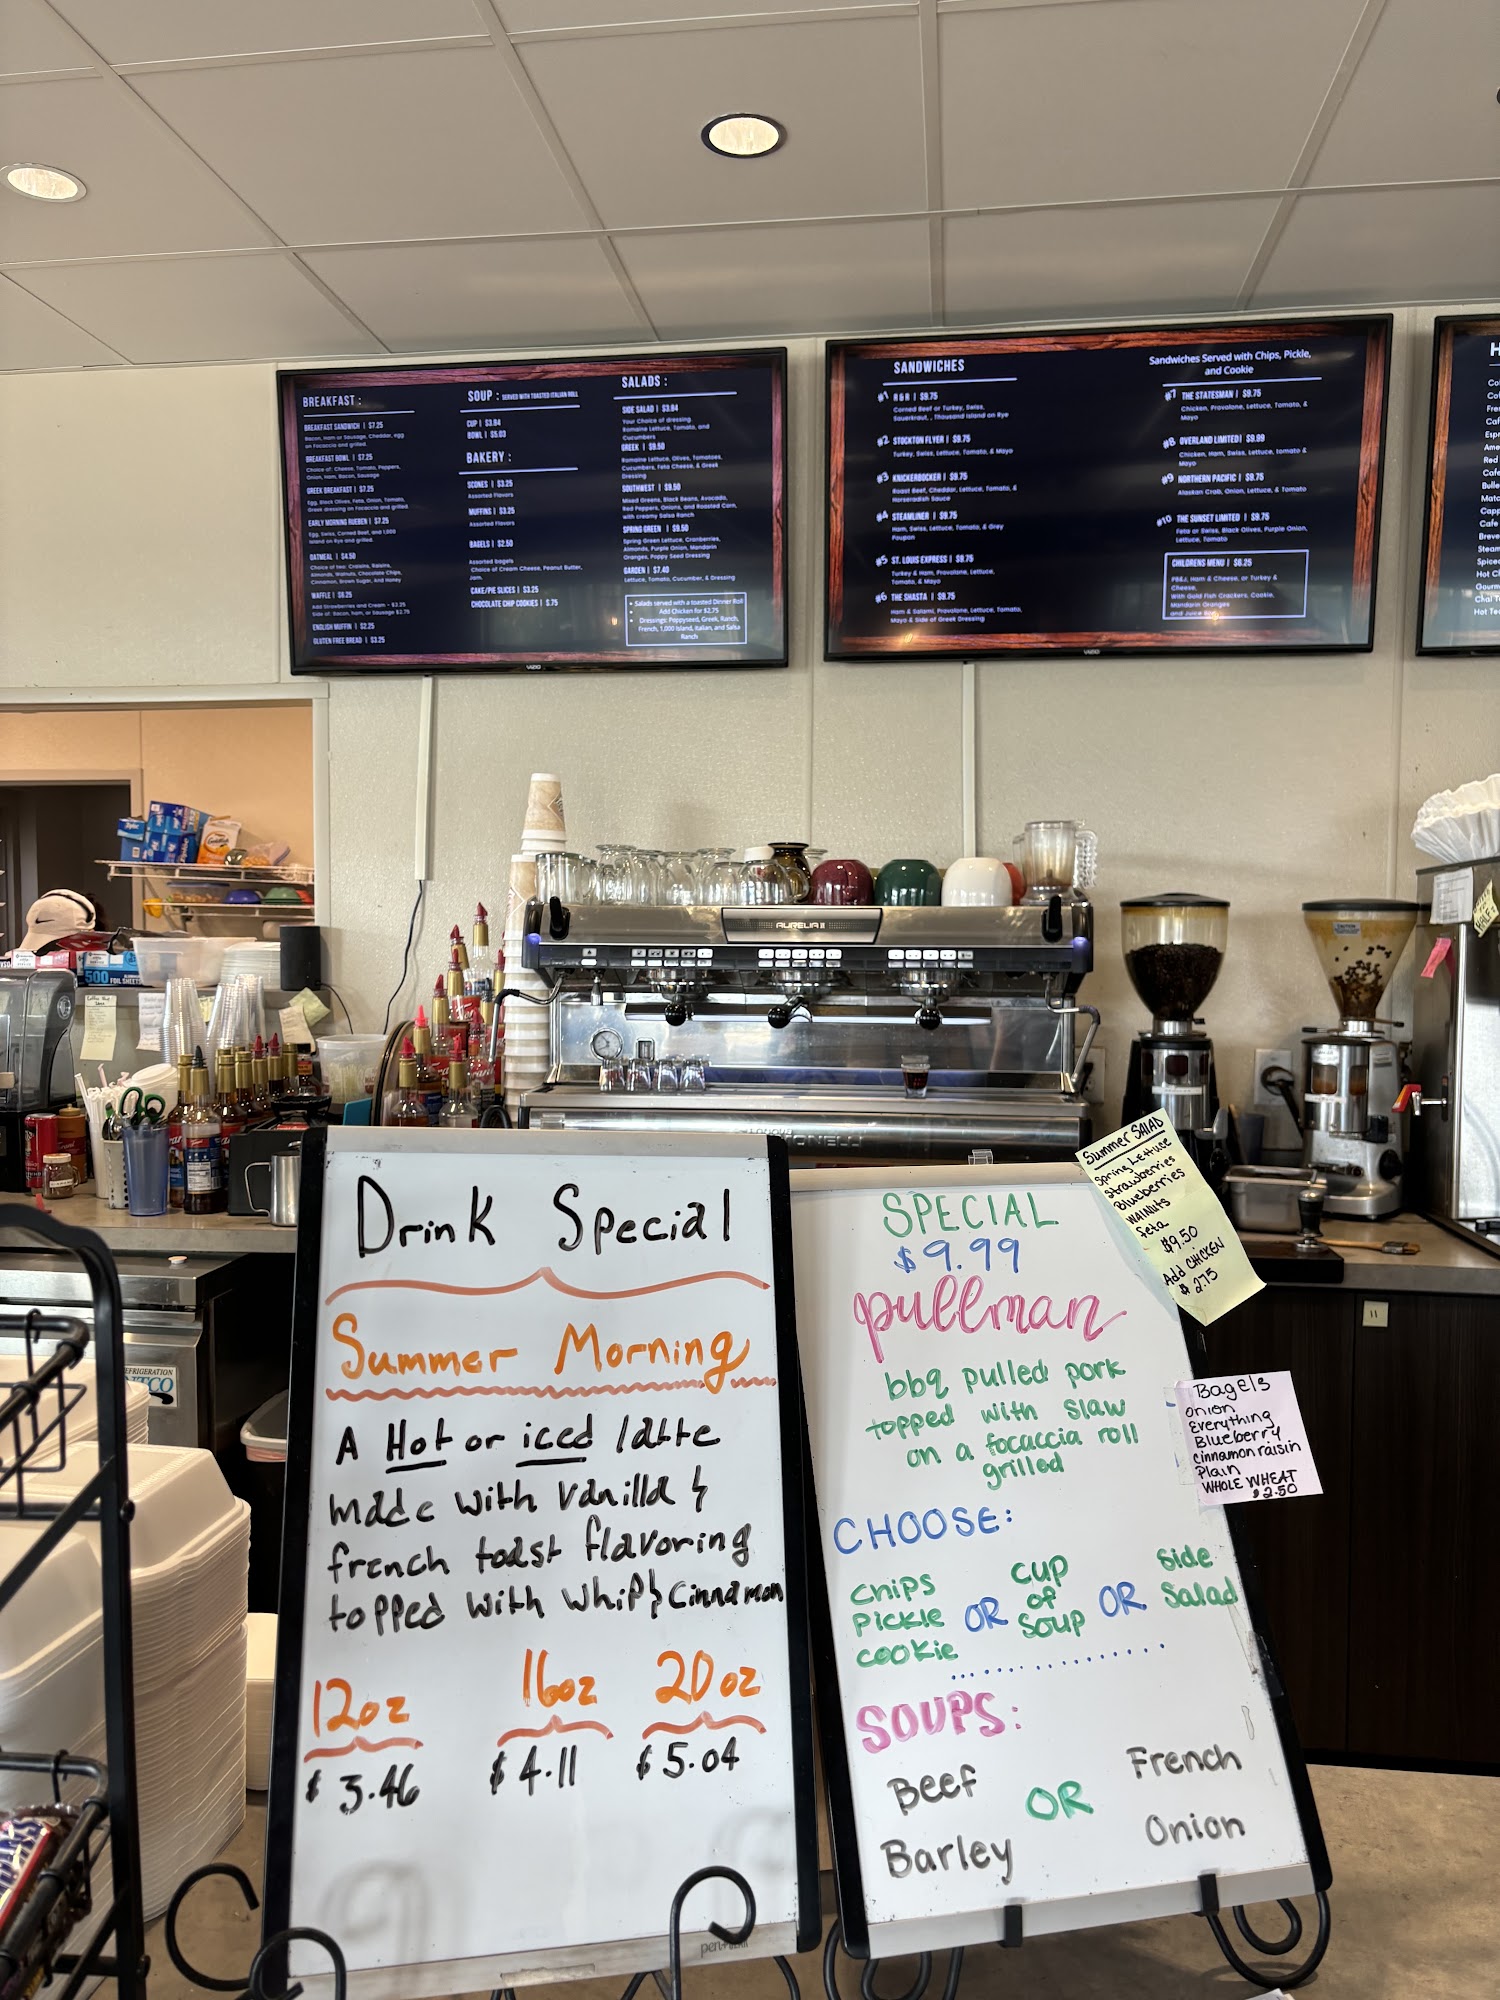 BREAKFAST :
BREAKFAST SANDWICH | $7.25
Bacon, Ham or Sausage, Cheddar, egg
on Focaccia and grilled.
BREAKFAST BOWL | $7.25
Choice of: Cheese, Tomato, Peppers,
Onion, Ham, Bacon, Sausage
GREEK BREAKFAST | $7.25
Egg, Black Olives, Feta, Onion, Tomato,
Greek dressing on Focaccia and grilled.
EARLY MORNING RUEBEN | $7.25
Egg, Swiss, Corned Beef, and 1,000
Island on Rye and grilled.
OATMEAL | $4.50
Choice of two: Craisins, Raisins,
Almonds, Walnuts, Chocolate Chips,
Cinnamon, Brown Sugar, And Honey
WAFFLE | $6.25
Add Strawberries and Cream - $3.25
Side of: Bacon, ham, or Sausage $2.75
ENGLISH MUFFIN | $2.25
GLUTEN FREE BREAD | $3.25
SOUP : SERVED WITH TOASTED ITALIAN ROLL
CUP | $3.84
BOWL | $5.03
BAKERY :
SCONES | $3.25
Assorted Flavors
MUFFINS | $3.25
Assorted Flavors
BAGELS | $2.50
Assorted bagels
Choice of Cream Cheese, Peanut Butter,
Jam.
CAKE/PIE SLICES | $3.25
CHOCOLATE CHIP COOKIES | $.75
SALADS :
SIDE SALAD | $3.84
Your Choice of dressing
Romaine Lettuce, Tomato, and
Cucumbers
GREEK | $9.50
Romaine Lettuce, Olives, Tomatoes,
Cucumbers, Feta Cheese, & Greek
Dressing
SOUTHWEST | $9.50
Mixed Greens, Black Beans, Avocado,
Red Peppers, Onions, and Roasted Corn,
with creamy Salsa Ranch
SPRING GREEN | $9.50
Spring Green Lettuce, Cranberries,
Almonds, Purple Onion, Mandarin
Oranges, Poppy Seed Dressing
GARDEN | $7.40
Lettuce, Tomato, Cucumber, & Dressing
• Salads served with a toasted Dinner Roll
Add Chicken for $2.75
• Dressings: Poppyseed, Greek, Ranch,
French, 1,000 Island, Italian, and Salsa
Ranch
VIZIO
SANDWICHES
#1 R & R | $9.75
Corned Beef or Turkey, Swiss,
Sauerkraut, , Thousand Island on Rye
#2 STOCKTON FLYER | $9.75
Turkey, Swiss, Lettuce, Tomato, & Mayo
#3 KNICKERBOCKER | $9.75
Roast Beef, Cheddar, Lettuce, Tomato, &
Horseradish Sauce
#4 STEAMLINER | $9.75
Ham, Swiss, Lettuce, Tomato, & Grey
Poupon
#5 ST. LOUIS EXPRESS | $9.75
Turkey & Ham, Provalone, Lettuce,
Tomato, & Mayo
#6 THE SHASTA | $9.75
Ham & Salami, Provalone, Lettuce, Tomato,
Mayo & Side of Greek Dressing
Sandwiches Served with Chips, Pickle,
and Cookie
#7 THE STATESMAN | $9.75
Chicken, Provalone, Lettuce, Tomato, &
Mayo
#8 OVERLAND LIMITED| $9.99
Chicken, Ham, Swiss, Lettuce, tomato &
Mayo
#9 NORTHERN PACIFIC | $9.75
Alaskan Crab, Onion, Lettuce, & Tomato
#10 THE SUNSET LIMITED | $9.75
Feta or Swiss, Black Olives, Purple Onion,
Lettuce, Tomato
CHILDRENS MENU | $6.25
PB&J, Ham & Cheese, or Turkey &
Cheese
With Gold Fish Crackers, Cookie,
Mandarin Oranges
and Juice
VIZIO
AURELIA II
500
FOIL SHEETS
Drink Special
Summer Morning
A Hot or iced latte
made with vanilla &
french toast flavoring
topped with whip & cinnamon
12oz 16oz 20oz
$3.46 $4.11 $5.04
SPECIAL
$9.99
pullman
bbq pulled pork
topped with slaw
on a focaccia roll
grilled
CHOOSE:
chips
Pickle
cookie
OR
cup
of
soup
OR
side
salad
SOUPS:
Beef
Barley
OR
French
Onion
Summer SALAD
Spring Lettuce
Strawberries
Blueberries
WAlNUTS
feta
$9.50
Add CHICKEN
$2.75
Bagels
onion
Everything
Blueberry
cinnamon raisin
Plain
WHOLE WHEAT
$2.50
11